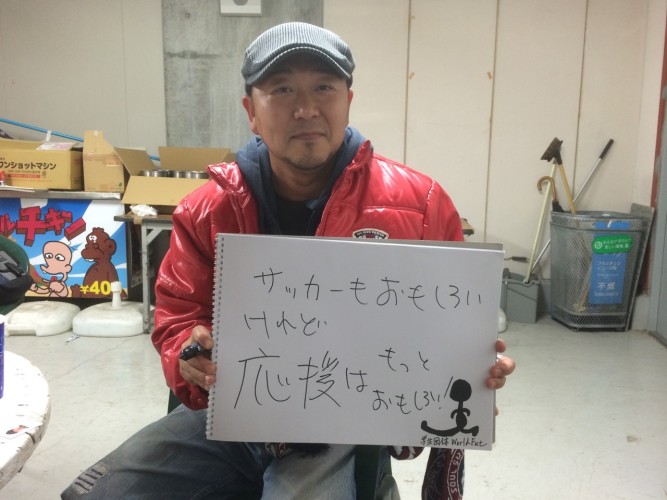 サッカーもおもしろい
けれど
応援はもっと
おもしろい!
学生団体 WorldFut
ワンショットマシン
ルチキン
¥40
不燃